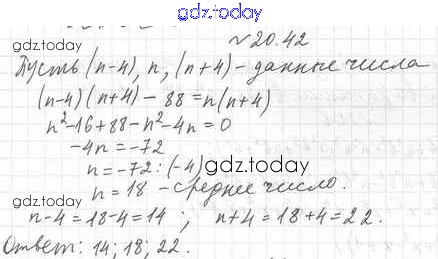 gdz.today
№20.42
gdz.today
Пусть (n-4), n, (n+4) - данные числа
(n-4)(n+4) - 88 = n(n+4)
n²-16+88-n²-4n=0
-4n=-72
n=-72:(-4)
gdz.today
n=18 - среднее число.
gdz.today
n-4=18-4=14 ; n+4=18+4=22.
Ответ: 14; 18; 22.
gdz.today